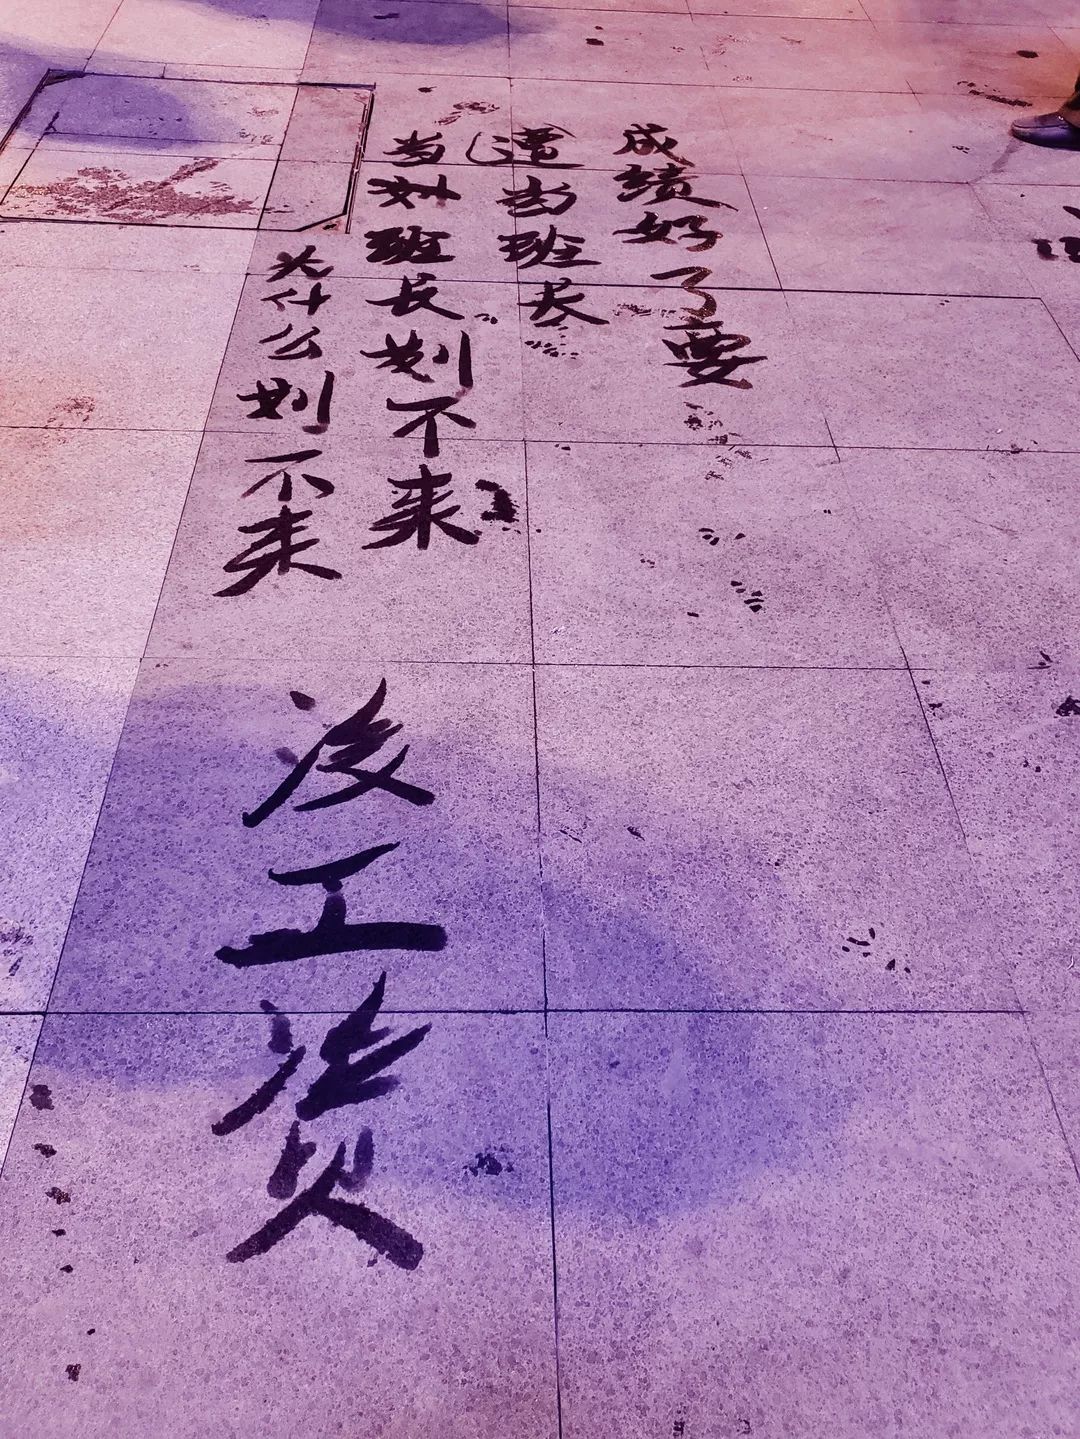 成绩好了要
遭当班长
当班长划不来
为什么划不来
没工资